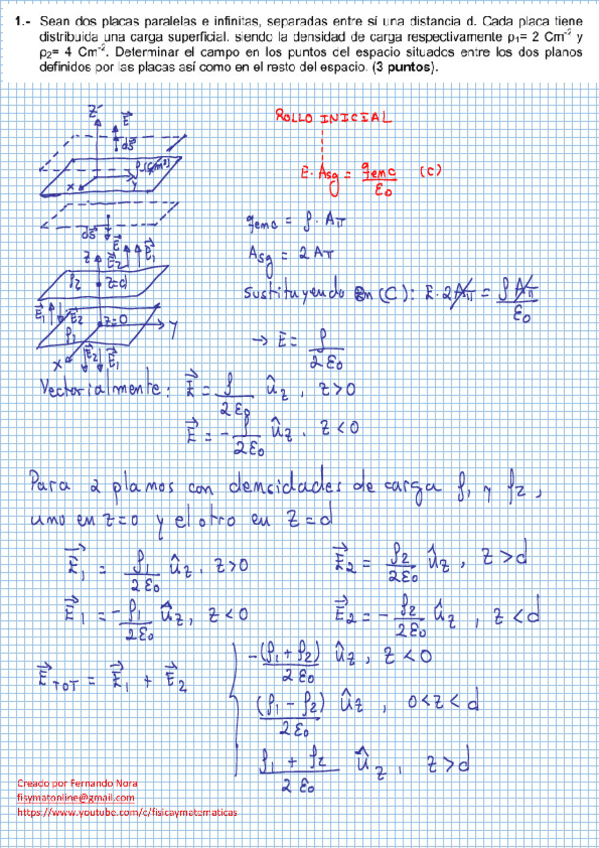 1.- Sean dos placas paralelas e infinitas, separadas entre sí una distancia d. Cada placa tiene
distribuida una carga superficial, siendo la densidad de carga respectivamente ρ₁= 2 Cm⁻² y
ρ₂= 4 Cm⁻². Determinar el campo en los puntos del espacio situados entre los dos planos
definidos por las placas así como en el resto del espacio. (3 puntos).
ROLLO INICIAL
E · Asg = qenc / ε₀ (C)
qenc = ρ · Aπ
Asg = 2 Aπ
sustituyendo en (C): E · 2Aπ = ρ Aπ / ε₀
→ E = ρ / 2ε₀
Z E⃗ dS⃗
X Y
dS⃗ E⃗
Z E⃗₂ E⃗₁
ρ₂ z=d
E⃗₁ E⃗₂ z=0 Y
ρ₁
X E⃗₂ E⃗₁
Vectorialmente: E⃗ = ρ / 2ε₀ ûz , z>0
E⃗ = - ρ / 2ε₀ ûz , z<0
Para 2 planos con densidades de carga ρ₁ y ρ₂,
uno en z=0 y el otro en z=d
E⃗₁ = ρ₁ / 2ε₀ ûz , z>0 E⃗₂ = ρ₂ / 2ε₀ ûz , z>d
E⃗₁ = -ρ₁ / 2ε₀ ûz , z<0 E⃗₂ = - ρ₂ / 2ε₀ ûz , z<d
-(ρ₁ + ρ₂) / 2ε₀ ûz , z<0
E⃗TOT = E⃗₁ + E⃗₂
(ρ₁ - ρ₂) / 2ε₀ ûz , 0<z<d
ρ₁ + ρ₂ / 2ε₀ ûz , z>d
Creado por Fernando Nora
fisymatonline@gmail.com
https://www.youtube.com/c/fisicaymatematicas